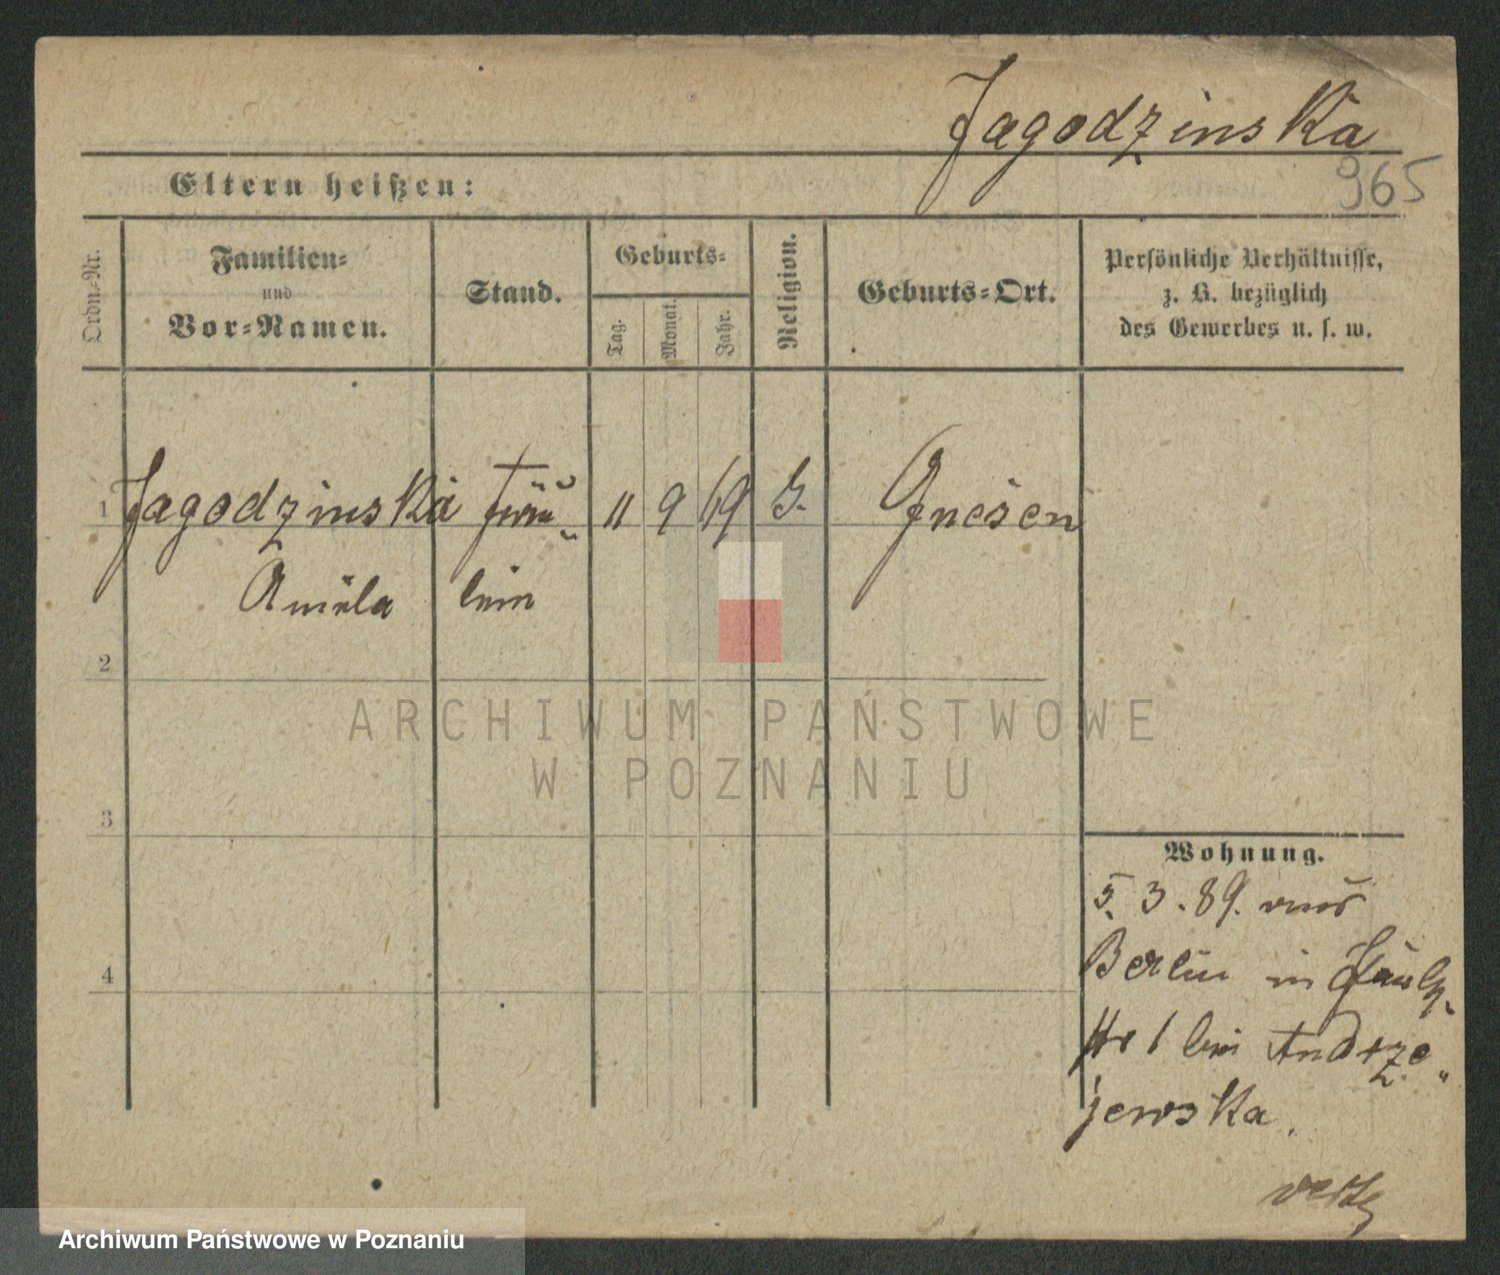 Jagodzinska
965
Eltern heißen:
Ordn.-Nr.
Familien-
und
Vor-Namen.
Stand.
Geburts-
Tag.
Monat.
Jahr.
Religion.
Geburts-Ort.
Persönliche Verhältnisse,
z. B. bezüglich
des Gewerbes u. s. w.
1 Jagodzinska Fräu- 11 9 69 Gnesen
Amila lein
2
ARCHIWUM PAŃSTWOWE
W POZNANIU
3
Wohnung.
5. 3. 89. aus
4
Berlin in
Nr 1 bei Andrze-
jewska.
Archiwum Państwowe w Poznaniu